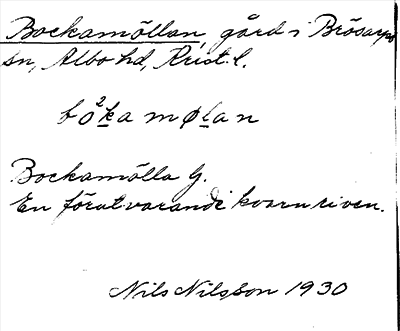 Bockamöllan, gård i Brösarps
sn, Albo hd, Krist. l.
bo²kamølan
Bockamölla G.
En förutvarande kvarn riven.
Nils Nilsson 1930